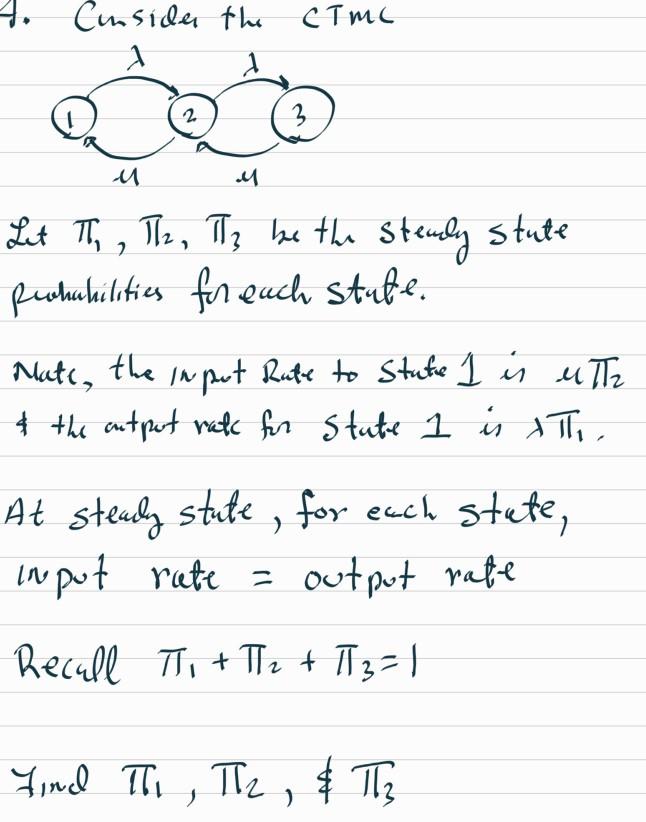 4. Consider the CTMC
λ λ
1 2 3
μ μ
Let π₁, π₂, π₃ be the steady state
probabilities for each state.
Note, the input Rate to state 1 is μπ₂
& the output rate for state 1 is λπ₁.
At steady state, for each state,
input rate = output rate
Recall π₁ + π₂ + π₃ = 1
Find π₁, π₂, & π₃